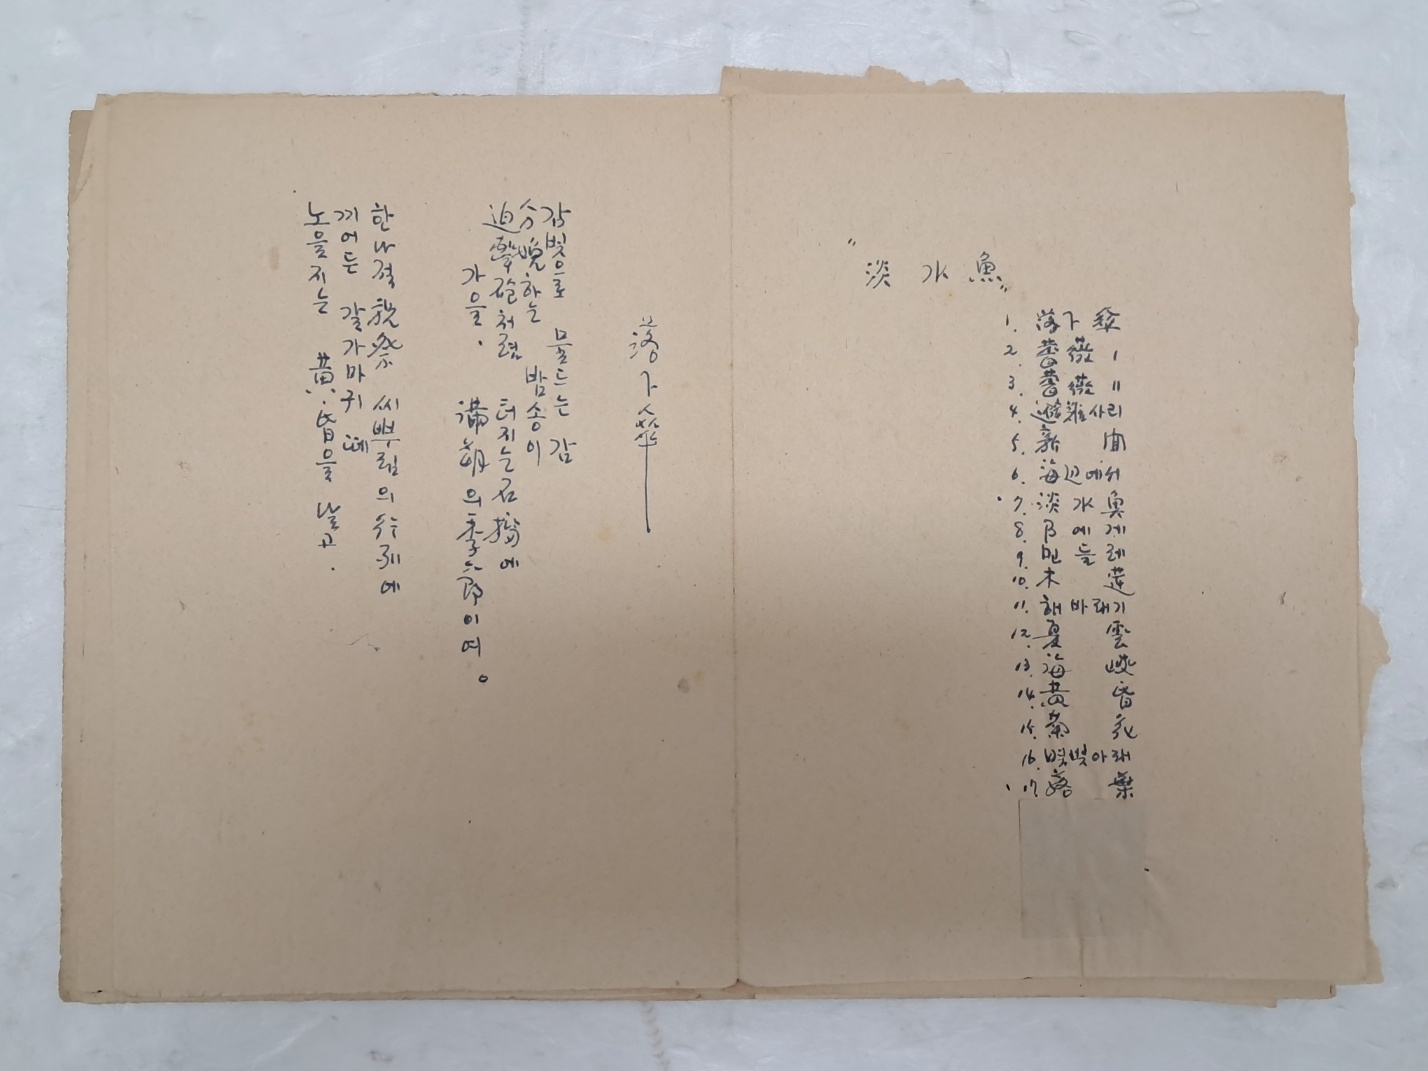 "淡水魚"
1. 落下傘
2. 薔薇 I
3. 薔薇 II
4. 避難사리
5. 新聞
6. 海辺에서
7. 淡水魚
8. B에게
9. 민들레
10. 木蓮
11. 해바래기
12. 夏雲
13. 海峽
14. 黃昏
15. 菊花
16. 아래
17. 落葉
落下傘
감빛으로 물드는 감
分娩하는 밤송이
迫擊砲처럼 터지는 石榴에
가을. 滿朔의 季節이여。
한나절 祝祭 씨뿌림의 行列에
끼어든 갈가마귀 떼
노을지는 黃昏을 날고.